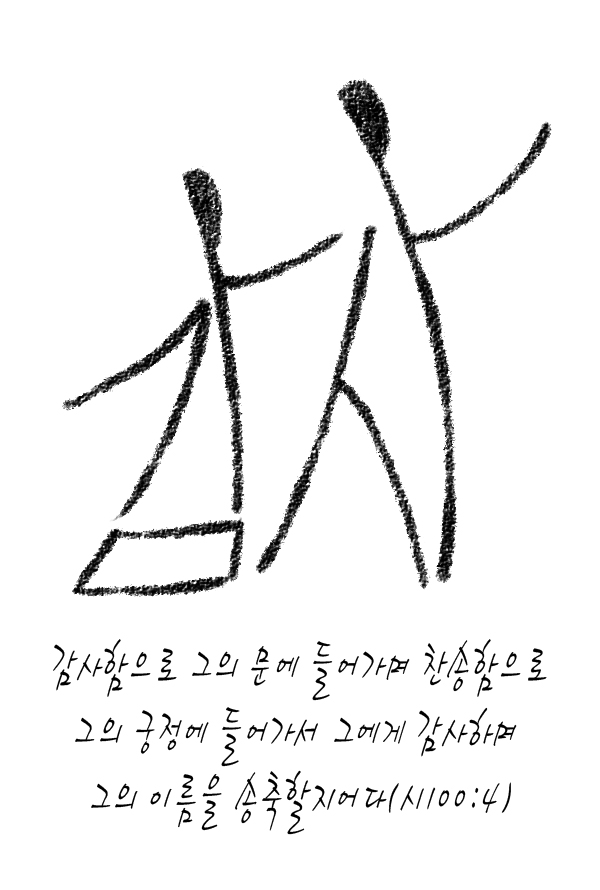 감사
감사함으로 그의 문에 들어가며 찬송함으로
그의 궁정에 들어가서 그에게 감사하며
그의 이름을 송축할지어다(시100:4)